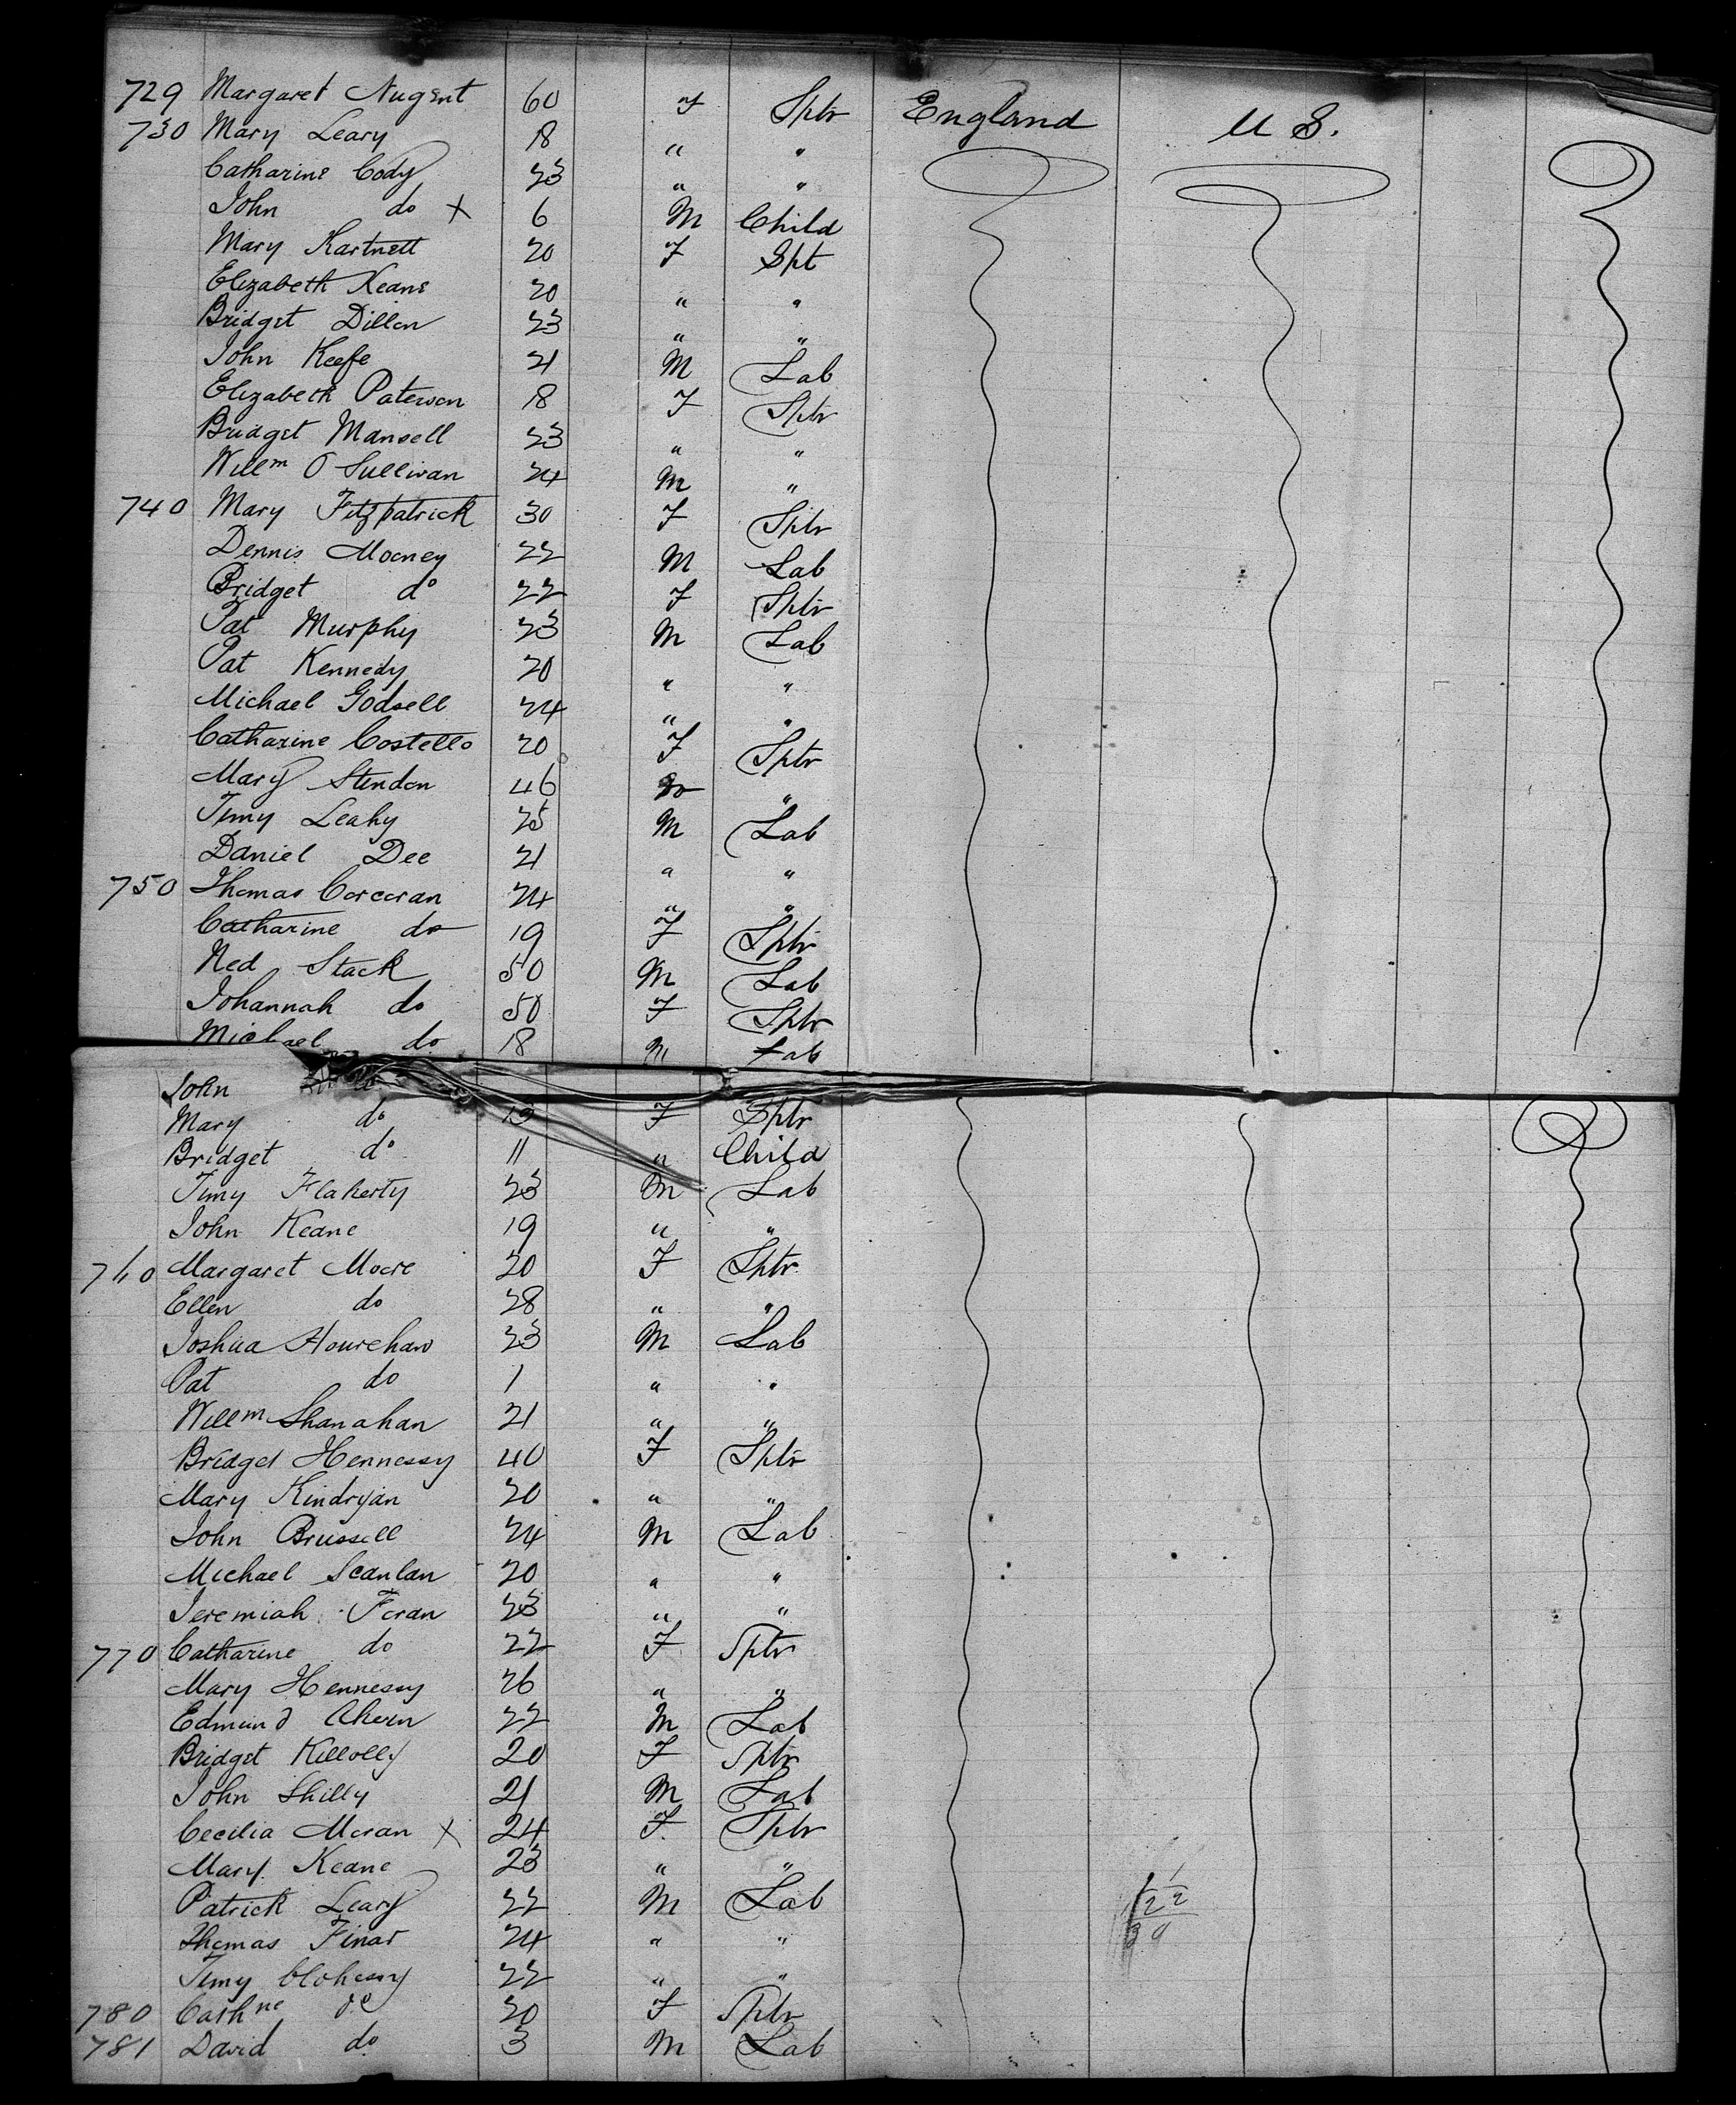 729 Margaret Nugent 60 F Sptr England U S.
730 Mary Leary 18 " "
Catharine Cody 23 " "
John do X 6 M Child
Mary Hartnett 20 F Spt
Elizabeth Keane 20 " "
Bridget Dillon 23 " "
John Keefe 21 M Lab
Elizabeth Paterson 18 F Sptr
Bridget Mansell 23 " "
Willm O Sullivan 24 M "
740 Mary Fitzpatrick 30 F Sptr
Dennis Mooney 22 M Lab
Bridget do 22 F Sptr
Pat Murphy 23 M Lab
Pat Kennedy 20 " "
Michael Godsell 24 " "
Catharine Costello 20 F Sptr
Mary Stendon 46 do "
Timy Leahy 25 M Lab
Daniel Dee 21 " "
750 Thomas Corcoran 24 " "
Catharine do 19 F Sptr
Ned Stack 50 M Lab
Johannah do 50 F Sptr
Michael do 18 M Lab
John
Mary do 13 F Sptr
Bridget do 11 " Child
Timy Flaherty 23 M Lab
John Keane 19 " "
760 Margaret Moore 20 F Sptr
Ellen do 28 " "
Joshua Hourehan 23 M Lab
Pat do 1 " "
Willm Shanahan 21 " "
Bridget Hennessy 40 F Sptr
Mary Kindryan 20 " "
John Brussell 24 M Lab
Michael Scanlan 20 " "
Jeremiah Foran 23 " "
770 Catharine do 22 F Sptr
Mary Hennessy 26 " "
Edmund Ahern 22 M Lab
Bridget Killolly 20 F Sptr
John Shilly 21 M Lab
Cecilia Moran X 24 F Sptr
Mary Keane 23 " "
Patrick Leary 22 M Lab
Thomas Finar 24 " "
Timy Clohessy 22 " "
780 Cathne do 20 F Sptr
781 David do 3 M Lab